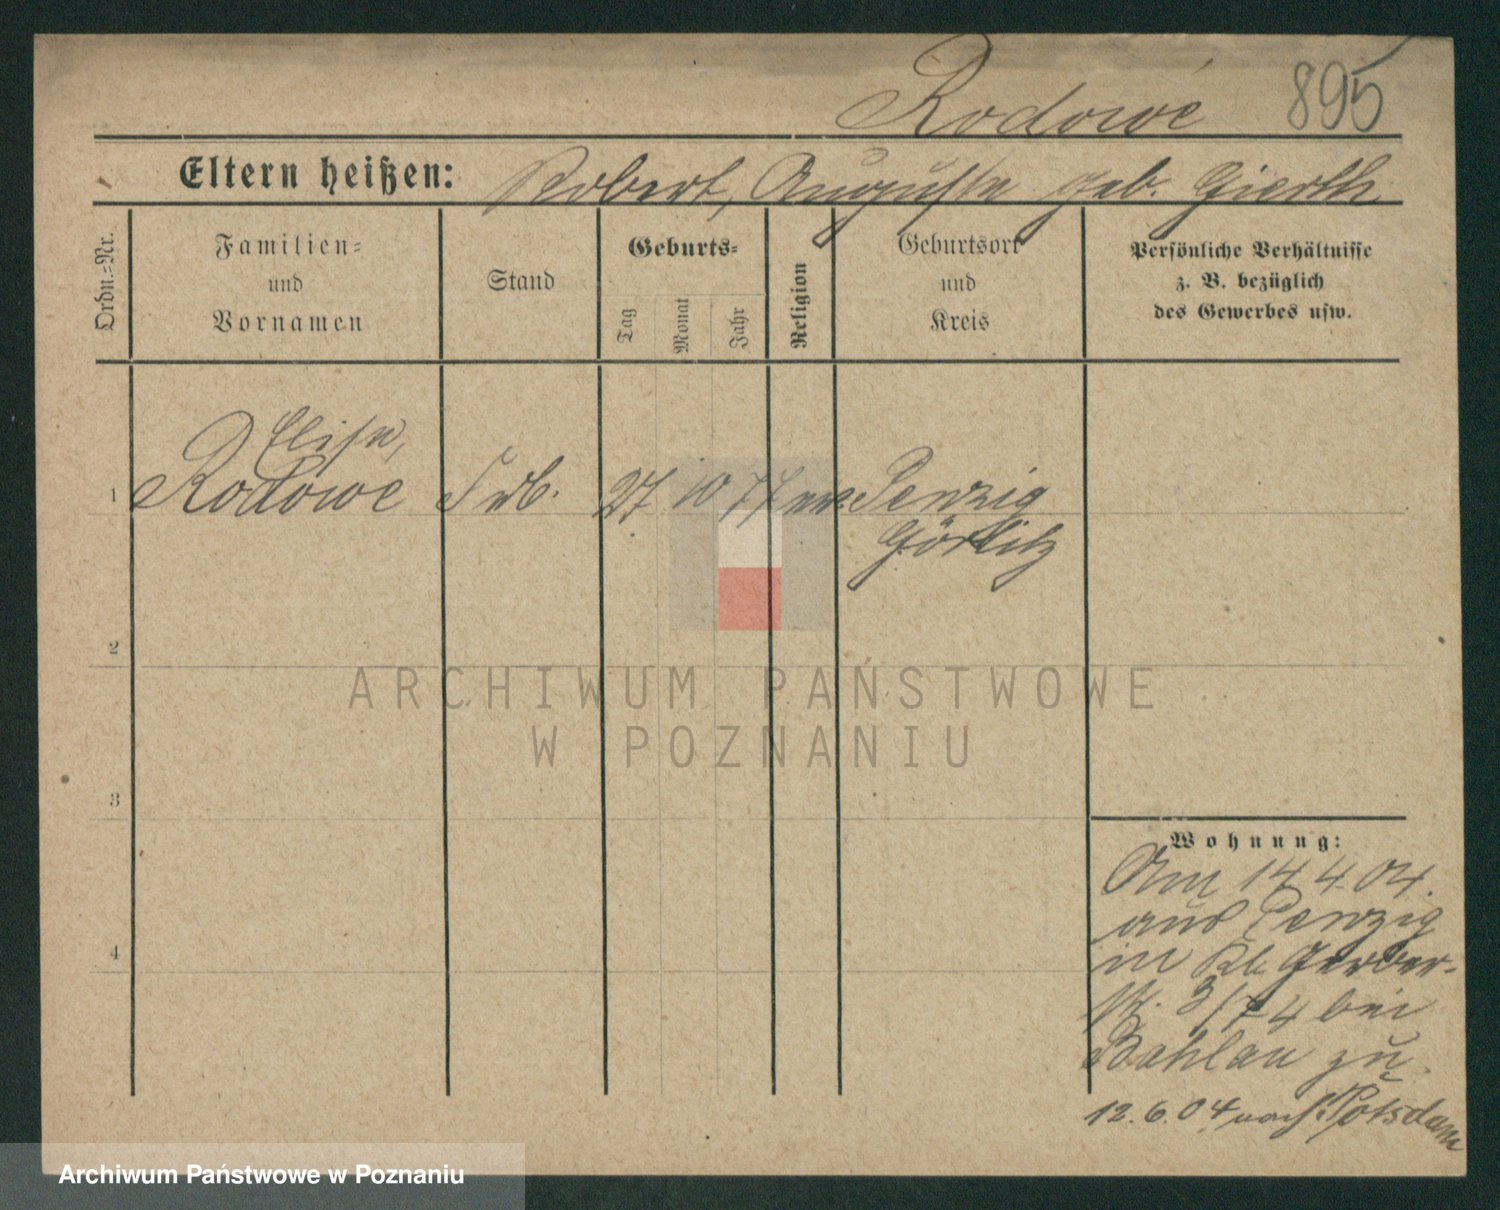 Rodowé 895
Eltern heißen: Robert, Auguste geb. Gierth
Ordn.=Nr.
Familien=
und
Vornamen
Stand
Geburts=
Tag
Monat
Jahr
Religion
Geburtsort
und
Kreis
Persönliche Verhältnisse
z. B. bezüglich
des Gewerbes usw.
Elise,
1 Rodowe 27 10 77 ev. Penzig
Görlitz
2
3
4
Wohnung:
Am 14.4.04.
aus Penzig
in Kl. Gerber-
str. 3/74 bei
Bahlau zu.
12.6.04 nach Potsdam
ARCHIWUM PAŃSTWOWE
W POZNANIU
Archiwum Państwowe w Poznaniu